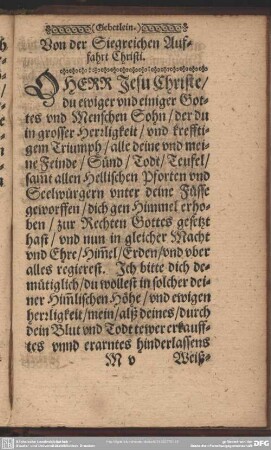 (Gebetlein.)
Von der Siegreichen Auf-
fahrt Christi.
O HERR Jesu Christe/
du ewiger vnd einiger Got-
tes vnd Menschen Sohn/ der du
in grosser Herrligkeit/ vnd kreffti-
gem Triumph/ alle deine vnd mei-
ne Feinde/ Sünd/ Todt/ Teufel/
sam̃t allen Hellischen Pforten vnd
Seelwürgern vnter deine Füsse
geworffen/ dich gen Himmel erho-
ben/ zur Rechten Gottes gesetzt
hast/ vnd nun in gleicher Macht
vnd Ehre/ Him̃el/ Erden/ vnd vber
alles regierest. Ich bitte dich de-
mütiglich/ du wollest in solcher dei-
ner Him̃lischen Höhe/ vnd ewigen
herrligkeit/ mein/ alß deines/ durch
dein Blut vnd Todt tewer erkauff-
tes vnnd erarntes hinderlassens
M v
Weiß-